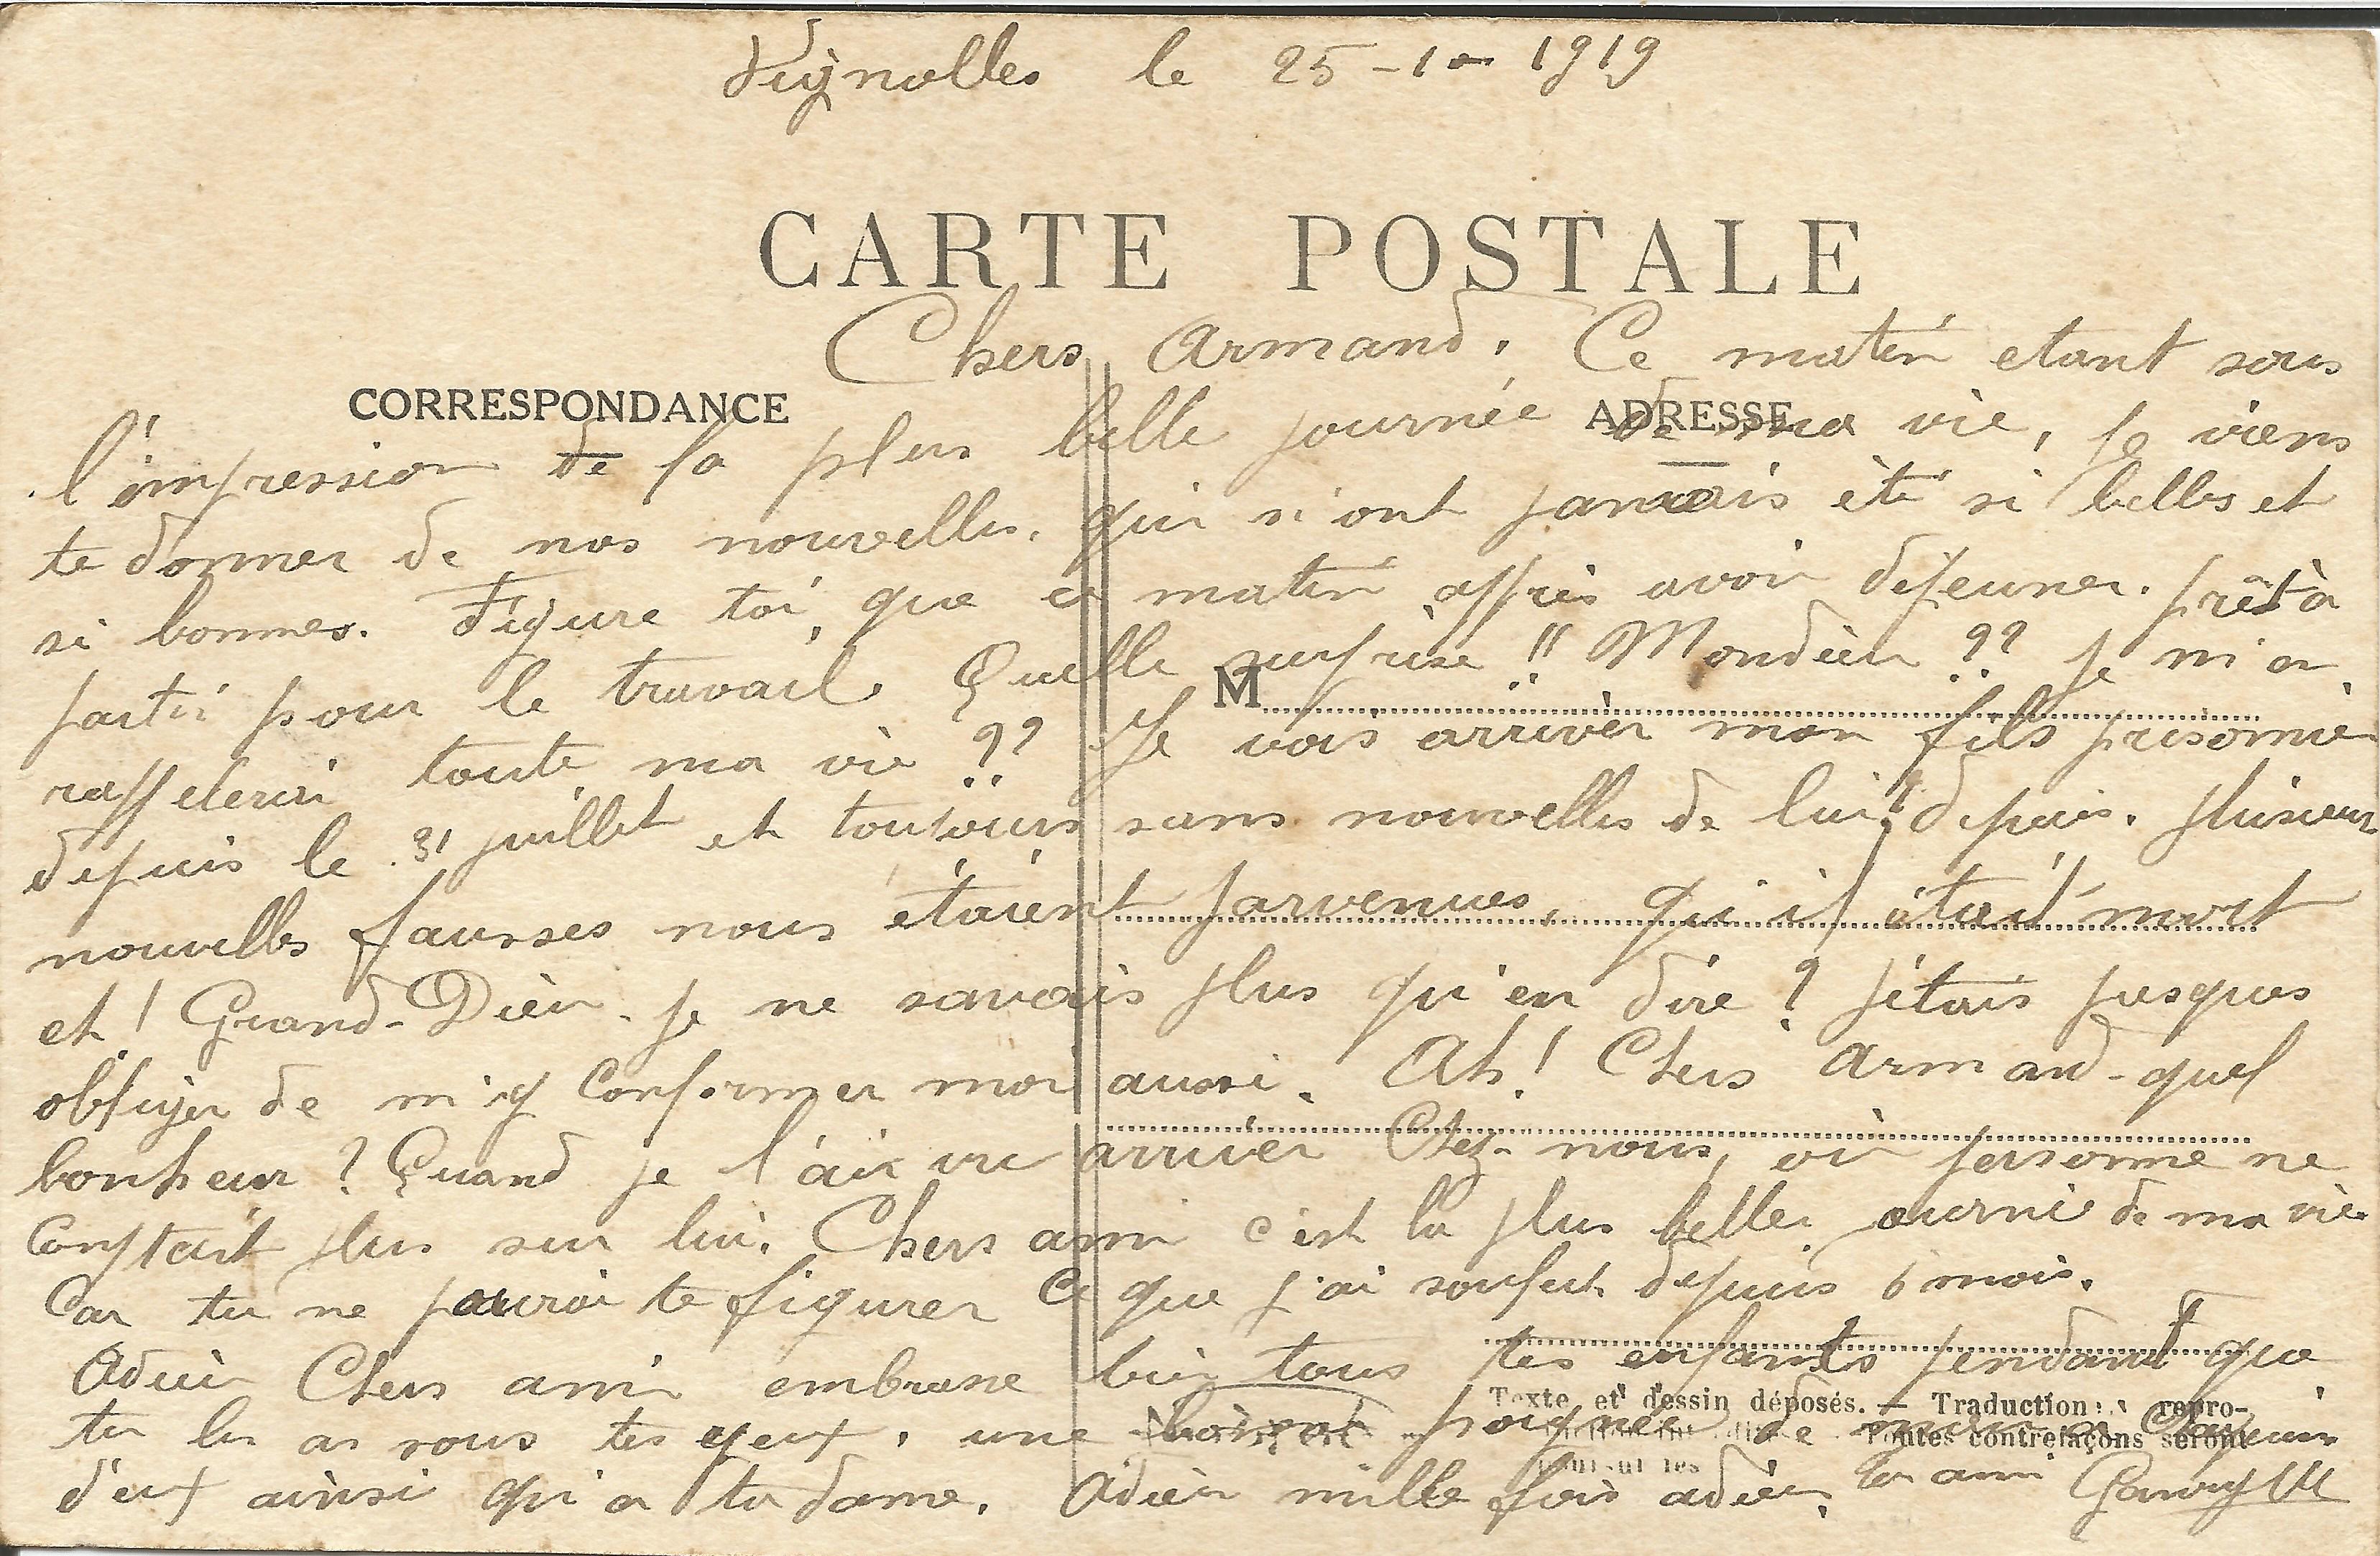 Vignolles le 25-1- 1919
CARTE POSTALE
Chers Armand. Ce matin etant sous
CORRESPONDANCE
ADRESSE
l'impression de la plus belle journée de ma vie, je viens
te donner de nos nouvelles. qui n'ont jamais èté si belles et
si bonnes. Figure toi, que ce matin apprès avoir déjeuner. prêt à
partir pour le travail. Quelle surprise !! Mondieu ?? je m'en
M
rappelerai toute ma vie ?? Je vois arriver mon fils prisonnier
depuis le 31 juillet et toujours sans nouvelles de lui! depuis. plusieurs
nouvelles fausses nous étaient parvenues. qu'il était mort
et! Grand-Dieu. je ne savais plus qu'en dire? j'étais jusques
obliger de m'y conformer moi aussi. Ah! Chers Armand-quel
bonheur? Quand je l'ai vu arriver Chez-nous, où personne ne
Comptait plus sur lui. Chers ami c'est la plus belle journée de ma vie
Car tu ne pourrai te figurer Ce que j'ai soufert depuis 6 mois.
Adieu Chers ami embrasse bien tous tes enfants pendant que
Texte et dessin déposés. — Traduction repro-
tu les as sous tes yeux. une poignée de main a Chaqu'un
Toutes contrefaçons seront
d'eux ainsi qu'a ta dame. Adieu mille fois adieu. ton ami